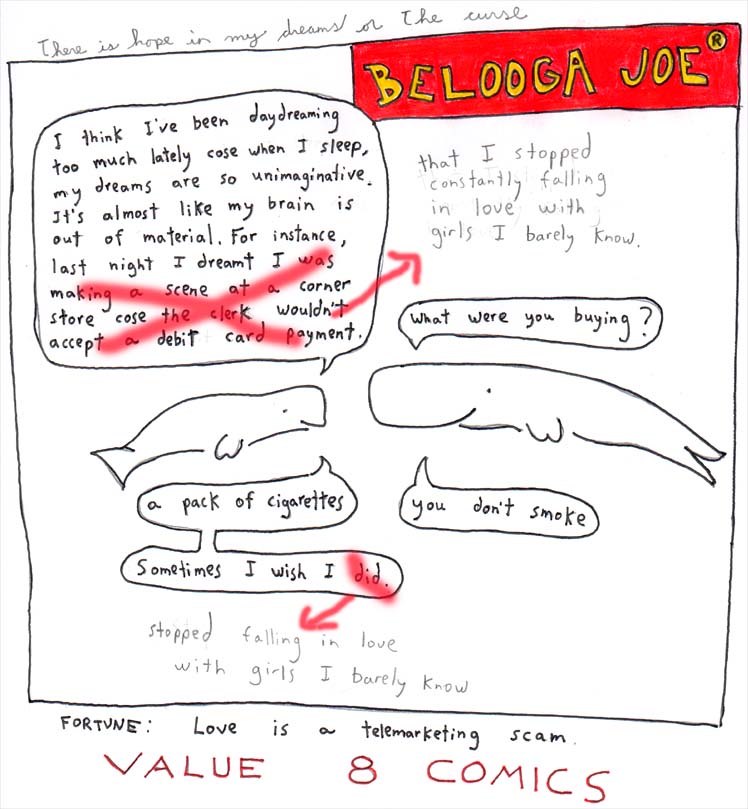 There is hope in my dreams or the curse
BELOOGA JOE®
I think I've been daydreaming
too much lately cose when I sleep,
my dreams are so unimaginative.
It's almost like my brain is
out of material. For instance,
last night I dreamt I was
making a scene at a corner
store cose the clerk wouldn't
accept a debit card payment.
that I stopped
constantly falling
in love with
girls I barely know.
what were you buying?
a pack of cigarettes
you don't smoke
Sometimes I wish I did.
stopped falling in love
with girls I barely know
FORTUNE: Love is a telemarketing scam.
VALUE 8 COMICS